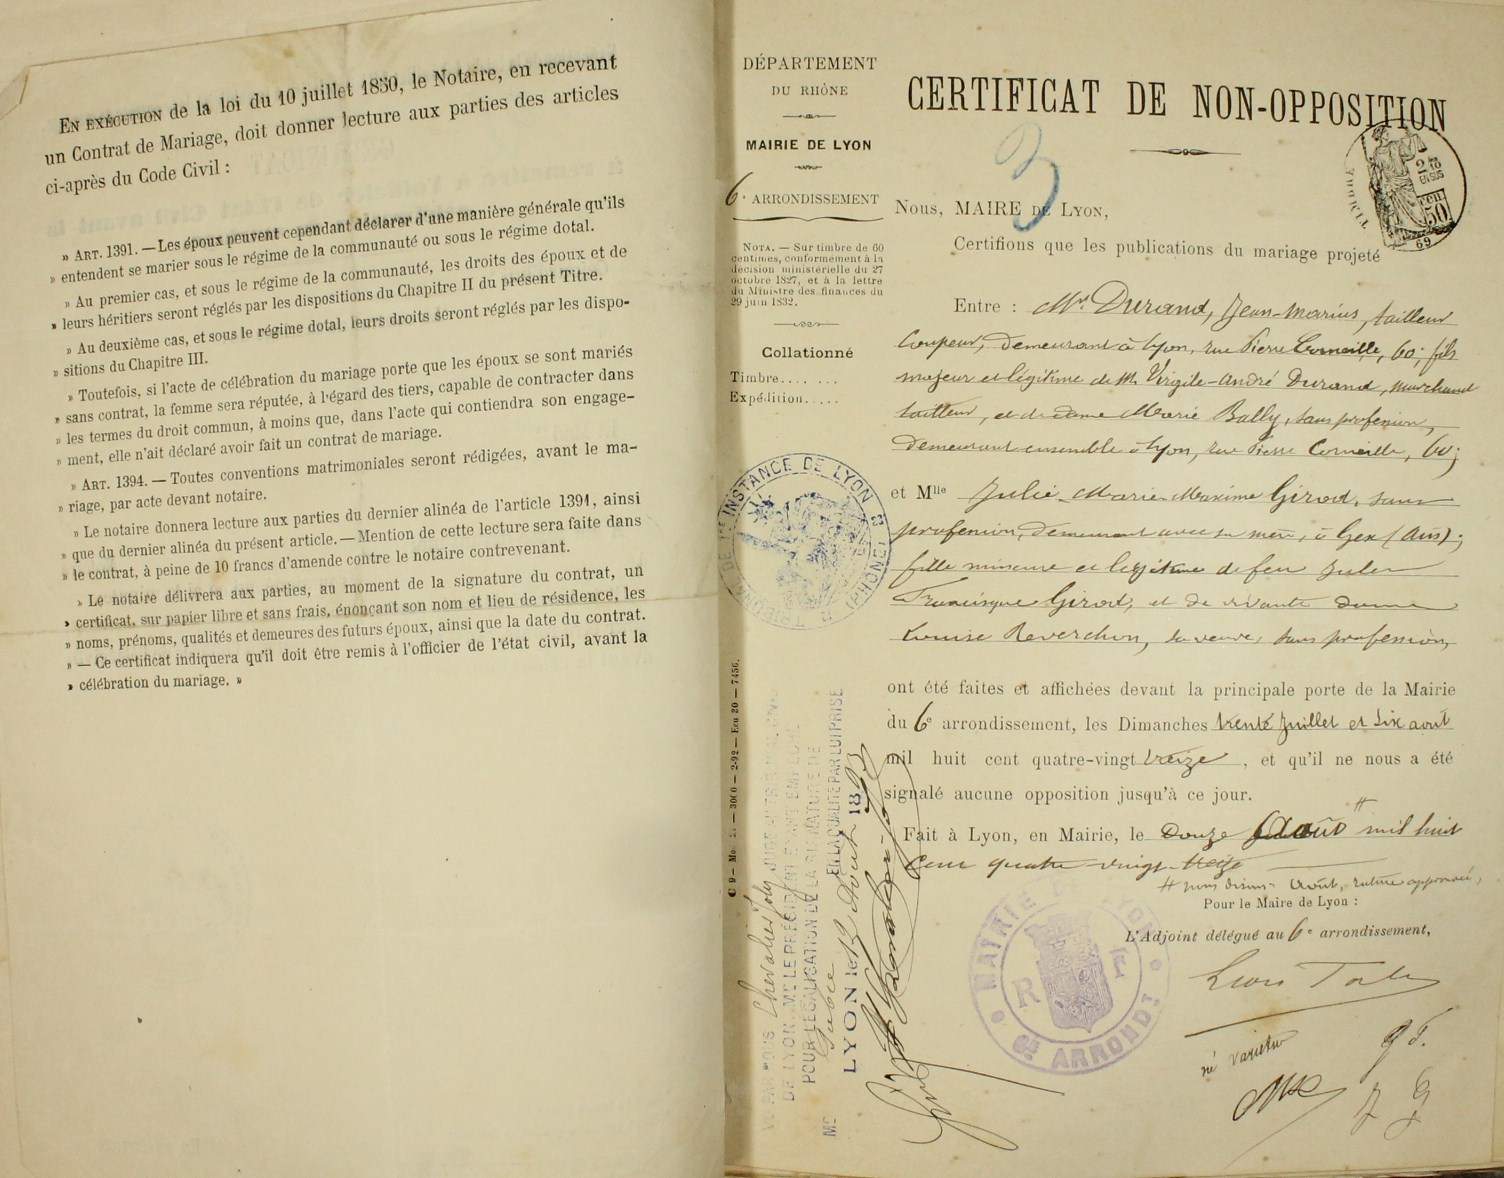 EN EXÉCUTION de la loi du 10 juillet 1850, le Notaire, en recevant
un Contrat de Mariage, doit donner lecture aux parties des articles
ci-après du Code Civil :
» ART. 1391. — Les époux peuvent cependant déclarer d'une manière générale qu'ils
» entendent se marier sous le régime de la communauté ou sous le régime dotal.
» Au premier cas, et sous le régime de la communauté, les droits des époux et de
» leurs héritiers seront réglés par les dispositions du Chapitre II du présent Titre.
» Au deuxième cas, et sous le régime dotal, leurs droits seront réglés par les dispo-
» sitions du Chapitre III.
» Toutefois, si l'acte de célébration du mariage porte que les époux se sont mariés
» sans contrat, la femme sera réputée, à l'égard des tiers, capable de contracter dans
» les termes du droit commun, à moins que, dans l'acte qui contiendra son engage-
» ment, elle n'ait déclaré avoir fait un contrat de mariage.
» ART. 1394. — Toutes conventions matrimoniales seront rédigées, avant le ma-
» riage, par acte devant notaire.
» Le notaire donnera lecture aux parties du dernier alinéa de l'article 1391, ainsi
» que du dernier alinéa du présent article. — Mention de cette lecture sera faite dans
» le contrat, à peine de 10 francs d'amende contre le notaire contrevenant.
» Le notaire délivrera aux parties, au moment de la signature du contrat, un
» certificat, sur papier libre et sans frais, énonçant son nom et lieu de résidence, les
» noms, prénoms, qualités et demeures des futurs époux, ainsi que la date du contrat.
» — Ce certificat indiquera qu'il doit être remis à l'officier de l'état civil, avant la
» célébration du mariage. »
DÉPARTEMENT
DU RHÔNE
MAIRIE DE LYON
6e ARRONDISSEMENT
NOTA. — Sur timbre de 60
centimes, conformément à la
décision ministérielle du 27
octobre 1827, et à la lettre
du Ministre des finances du
29 juin 1832.
Collationné
Timbre.......
Expédition.....
TRIBUNAL DE 1re INSTANCE DE LYON (RHÔNE)
CERTIFICAT DE NON-OPPOSITION
3
TIMBRE
50
69
Nous, MAIRE DE LYON,
Certifions que les publications du mariage projeté
Entre : Mr Durand, Jean-Marius, tailleur
coupeur, demeurant à Lyon, rue Pierre Corneille, 60; fils
majeur et légitime de Mr Virgile-André Durand, marchand
tailleur, et de dame Marie Bally, sans profession,
demeurant ensemble à Lyon, rue Pierre Corneille, 60;
et Mlle Julie-Marie-Maxime Girod, sans
profession, demeurant avec sa mère, à Gex (Ain);
fille mineure et légitime de feu Jules
Francisque Girod, et de vivante dame
Louise Reverchon, sa veuve, sans profession,
ont été faites et affichées devant la principale porte de la Mairie
du 6e arrondissement, les Dimanches trente Juillet et six août
mil huit cent quatre-vingt treize, et qu'il ne nous a été
signalé aucune opposition jusqu'à ce jour.
Fait à Lyon, en Mairie, le Douze Août # mil huit
cent quatre vingt-treize
# nous disons Août, rature approuvée,
Pour le Maire de Lyon :
L'Adjoint délégué au 6e arrondissement,
MAIRIE DE LYON
R F
6E ARRONDT
né varietur
VU PAR NOUS Chevalier Joly JUGE AU TRIBUNAL CIVIL
DE LYON, Mr LE PRÉSIDENT
POUR LÉGALISATION DE LA SIGNATURE DE
EN LA QUALITÉ PAR LUI PRISE
LYON le 12 Août 1893